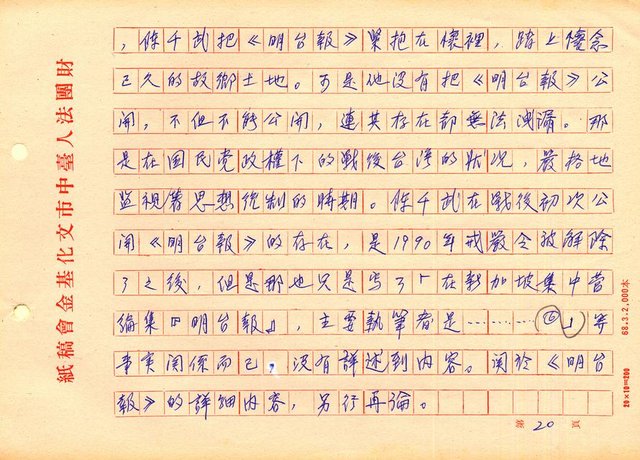 ，陳千武把《明台報》緊抱在懷裡，踏上懷念
已久的故鄉土地。可是他沒有把《明台報》公
開，不但不能公開，連其存在都無法洩漏。那
是在国民党政權下的戰後台湾的狀況，嚴格地
監視着思想統制的時期。陳千武在戰後初次公
開《明台報》的存在，是1990年戒嚴令被解除
了之後，但是那也只是写了「在新加坡集中营
編集『明台報』，主要執筆者是………㈣」等
事実関係而已，沒有詳述到內容。関於《明台
報》的詳細內容，另行再論。
第 20 頁
財團法人臺中市文化基金會稿紙
68.3.2,000本
20×10=200